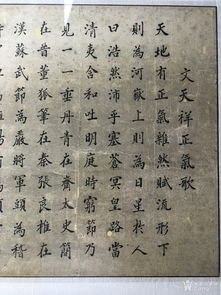 文天祥正氣歌
天地有正氣雜然賦流形下
則為河嶽上則為日星於人
曰浩然沛乎塞蒼冥皇路當
清夷含和吐明庭時窮節乃
見一一垂丹青在齊太史簡
在晉董狐筆在秦張良椎在
漢蘇武節為嚴將軍頭為嵇